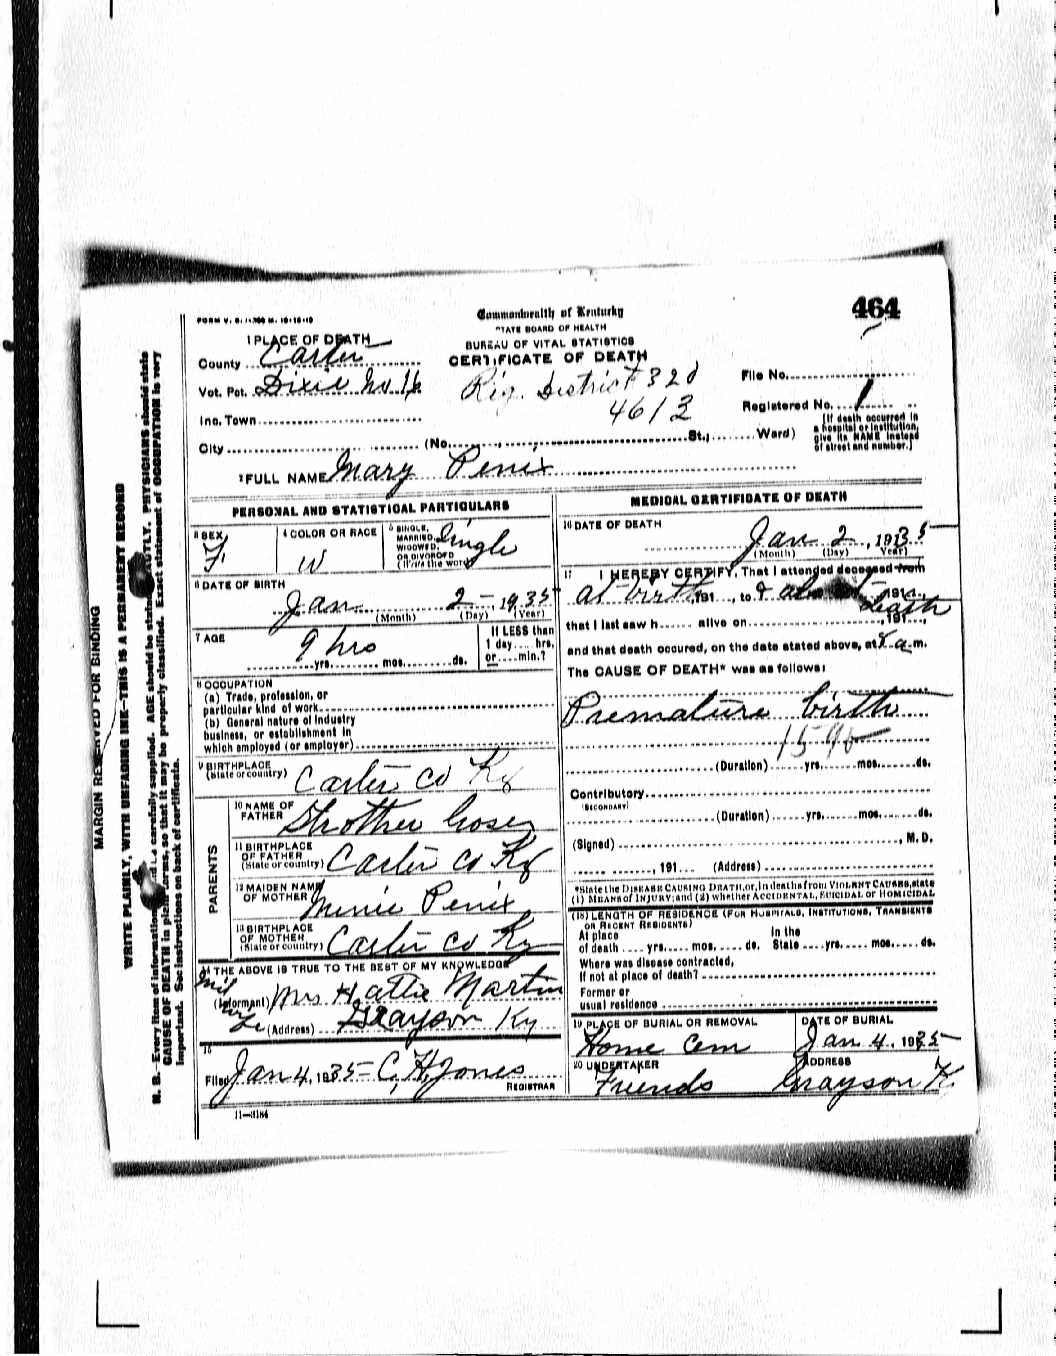 464
FORM V. S. 1-
Commonwealth of Kentucky
STATE BOARD OF HEALTH
BUREAU OF VITAL STATISTICS
CERTIFICATE OF DEATH
1 PLACE OF DEATH
County Carter
Vot. Pct. Dixie No. 16
Reg. District 320
4613
File No.
Registered No. 1
Inc. Town
City (No. St., Ward)
(If death occurred in a hospital or institution, give its NAME instead of street and number.)
2 FULL NAME Mary Penix
PERSONAL AND STATISTICAL PARTICULARS
3 SEX F
4 COLOR OR RACE W
5 SINGLE, MARRIED, WIDOWED, OR DIVORCED (Write the word) Single
6 DATE OF BIRTH
Jan 2 - 1935
(Month) (Day) (Year)
7 AGE 9 hrs
yrs. mos. ds.
If LESS than 1 day hrs. or min.?
8 OCCUPATION
(a) Trade, profession, or
particular kind of work
(b) General nature of industry
business, or establishment in
which employed (or employer)
9 BIRTHPLACE
(State or country) Carter Co Ky
PARENTS
10 NAME OF FATHER Strother
11 BIRTHPLACE OF FATHER (State or country) Carter Co Ky
12 MAIDEN NAME OF MOTHER Minie Penix
13 BIRTHPLACE OF MOTHER (State or country) Carter Co Ky
14 THE ABOVE IS TRUE TO THE BEST OF MY KNOWLEDGE
Mid Wife
(Informant) Mrs Hattie Martin
(Address) Grayson Ky
15
Filed Jan 4, 1935 - C. H. Jones
REGISTRAR
11-3184
MEDICAL CERTIFICATE OF DEATH
16 DATE OF DEATH
Jan 2, 1935
(Month) (Day) (Year)
17 I HEREBY CERTIFY, That I attended deceased from
at birth 191 , to & 191
death
that I last saw h alive on , 191 ,
and that death occured, on the date stated above, at a. m.
The CAUSE OF DEATH* was as follows:
Premature birth
(Duration) yrs. mos. ds.
Contributory
(SECONDARY)
(Duration) yrs. mos. ds.
(Signed) , M. D.
, 191 (Address)
*State the DISEASE CAUSING DEATH, or, in deaths from VIOLENT CAUSES, state
(1) MEANS OF INJURY; and (2) whether ACCIDENTAL, SUICIDAL OR HOMICIDAL
(18) LENGTH OF RESIDENCE (FOR HOSPITALS, INSTITUTIONS, TRANSIENTS
OR RECENT RESIDENTS)
At place of death yrs. mos. ds. In the State yrs. mos. ds.
Where was disease contracted,
If not at place of death?
Former or
usual residence
19 PLACE OF BURIAL OR REMOVAL
Home Cem
DATE OF BURIAL
Jan 4, 1935
20 UNDERTAKER
Friends
ADDRESS
Grayson K
MARGIN RESERVED FOR BINDING
WRITE PLAINLY, WITH UNFADING INK—THIS IS A PERMANENT RECORD
N. B.—Every item of information carefully supplied. AGE should be stated EXACTLY. PHYSICIANS should state
CAUSE OF DEATH in plain terms, so that it may be properly classified. Exact statement of OCCUPATION is very
important. See instructions on back of certificate.